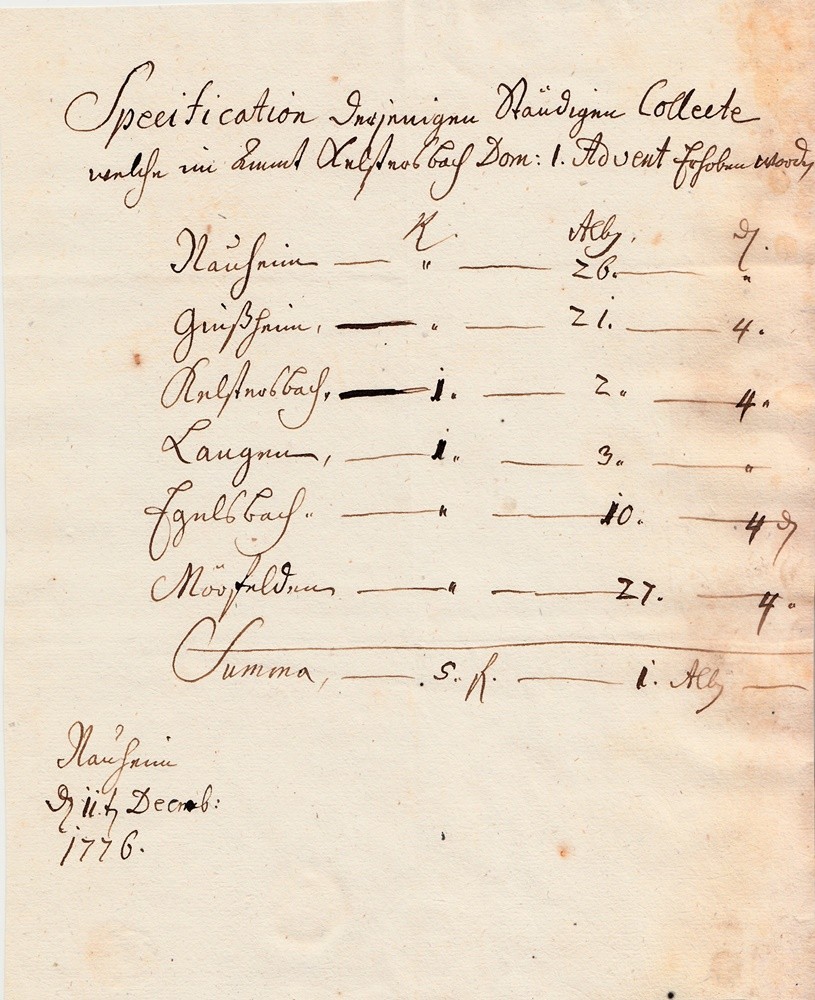 Specification derjenigen Ständigen Collecte
welche im Ammt Kelsterbach Dom: 1. Advent Erhoben worden
f. Alb. d.
Nauheim — " — 26. — "
Ginßheim, — " — 21. — 4.
Kelsterbach, — 1. — 2. — 4.
Langen, — 1. — 3. — "
Egelsbach. — " — 10. — 4 d
Mörfelden — " — 27. — 4.
Summa, — 5. f. — 1. Alb —
Nauheim
d 11.t Decmb:
1776.